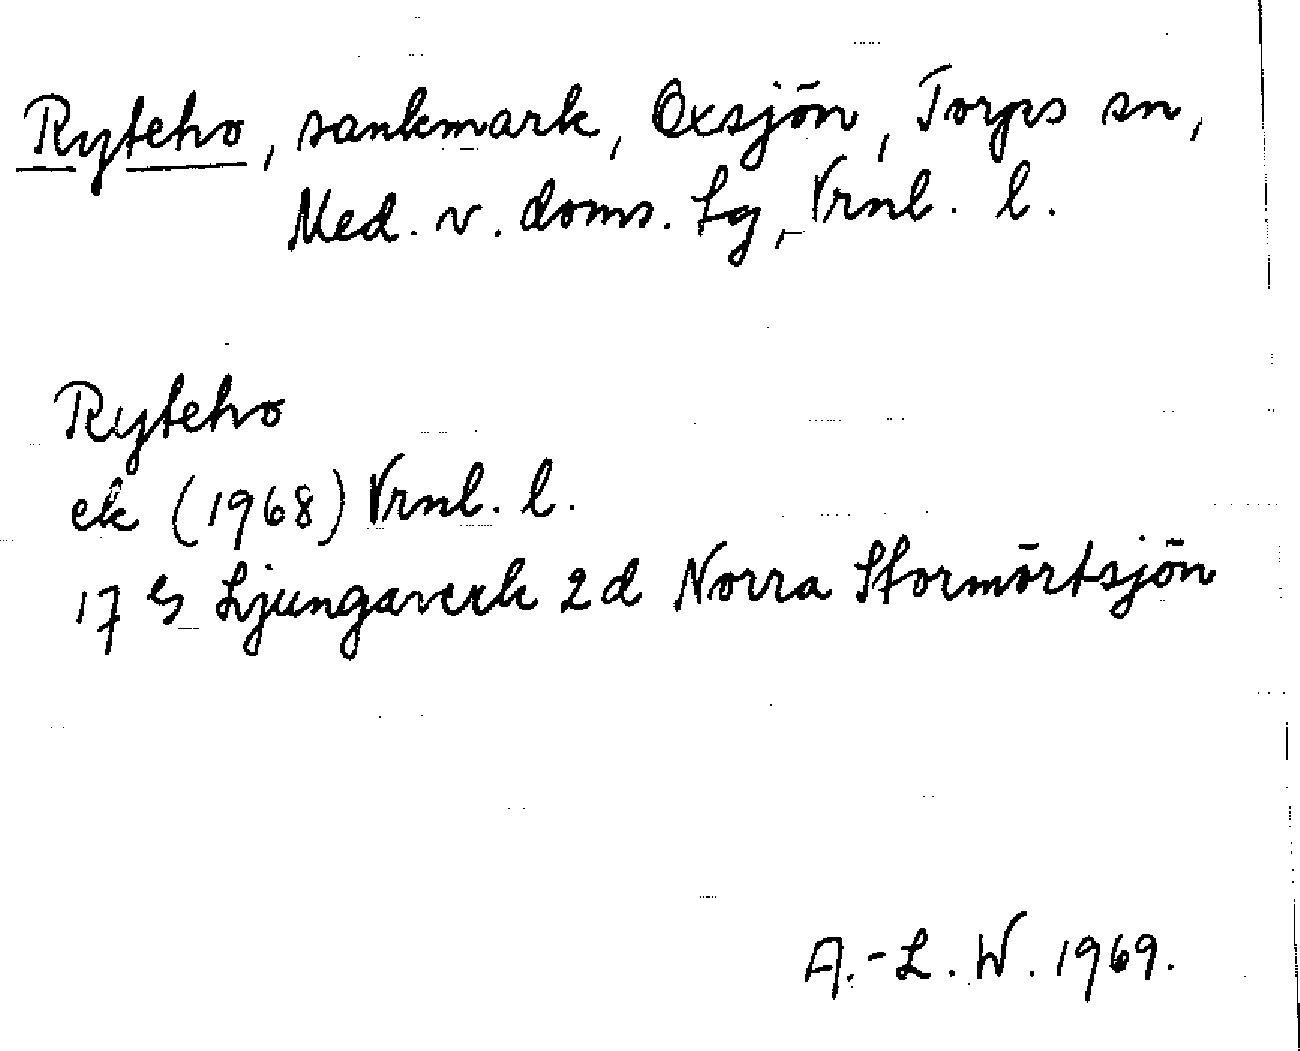 Ryteho, sankmark, Oxsjön, Torps sn,
Med. v. doms. lg, Vrnl. l.
Ryteho
ek (1968) Vrnl. l.
17 G Ljungaverk 2d Norra Stormörtsjön
A.-L. W. 1969.